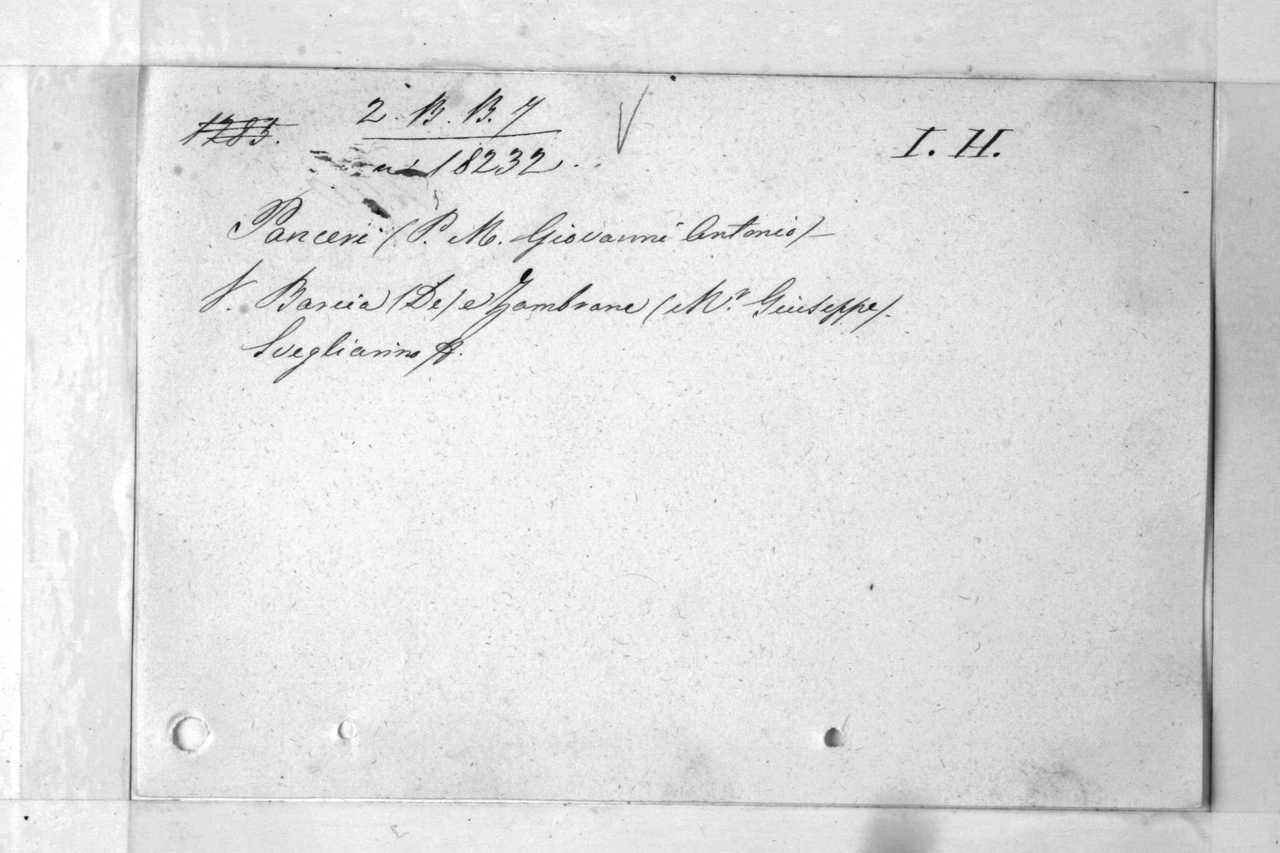 1285. 2. B. B. 7 I. H.
n. 18232
Panceri (P. M. Giovanni Antonio)
V. Barcia (De) e Zambrane (Mr. Giuseppe).
Svegliarino &.